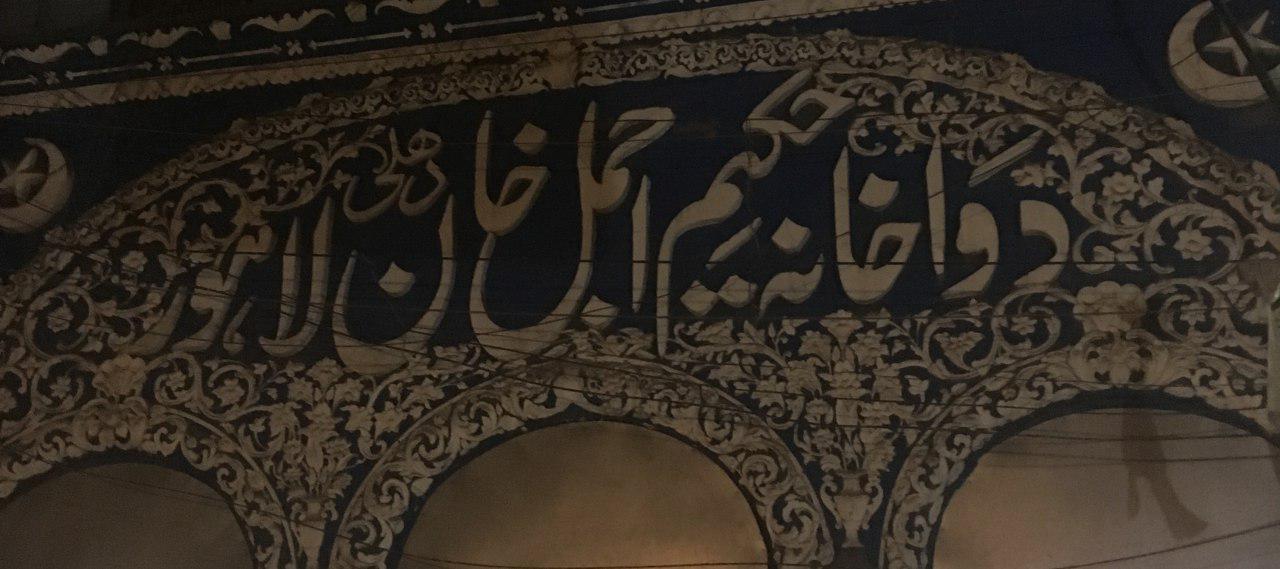 دواخانہ حکیم اجمل خان دہلی لاہور